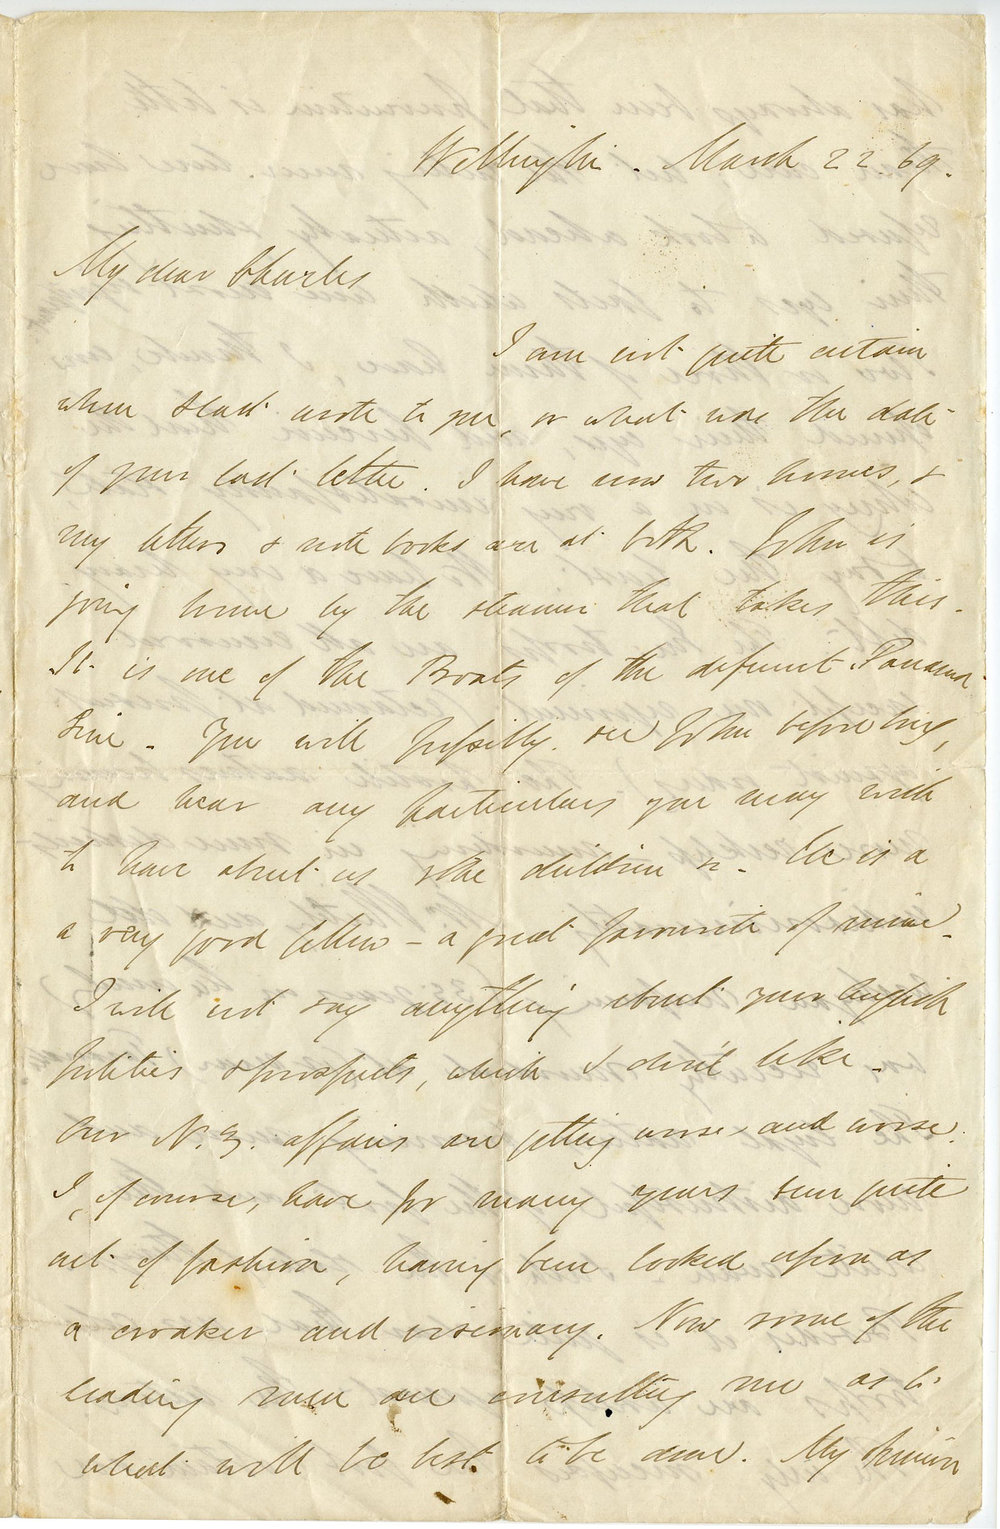 Wellington. March 22. 69.
My dear Charles
I am not quite certain
when I last wrote to you, or what was the date
of your last letter. I have now two homes, &
my letters & note books are at both. John is
going home by the steamer that takes this.
It is one of the Boats of the defunct Panama
Line. You will possibly see John before long,
and hear any particulars you may wish
to have about us & the children &c. He is a
a very good fellow – a great favourite of mine.
I will not say anything about your English
politics & prospects, which I don't like.
Our N.Z. affairs are getting worse and worse.
I, of course, have for many years been quite
out of fashion, having been looked upon as
a croaker and visionary. Now some of the
leading men are consulting me as to
what will be best to be done. My opinion